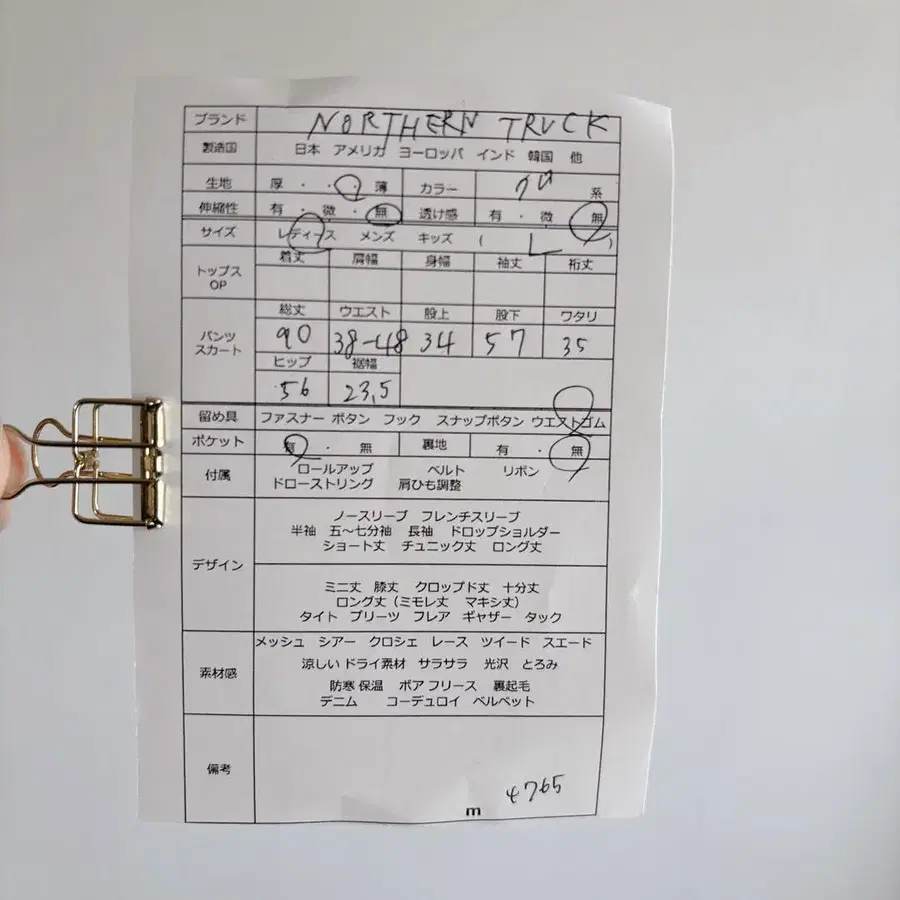 ブランド NORTHERN TRUCK
製造国 日本 アメリカ ヨーロッパ インド 韓国 他
生地 厚・・・薄 カラー 系
伸縮性 有・微・無 透け感 有・微 無
サイズ レディース メンズ キッズ ( L )
トップス OP 着丈 肩幅 身幅 袖丈 裄丈
パンツ スカート 総丈 ウエスト 股上 股下 ワタリ
90 38-48 34 57 35
ヒップ 裾幅
56 23,5
留め具 ファスナー ボタン フック スナップボタン ウエストゴム
ポケット 有・無 裏地 有・無
付属 ロールアップ ベルト リボン
ドローストリング 肩ひも調整
デザイン ノースリーブ フレンチスリーブ
半袖 五〜七分袖 長袖 ドロップショルダー
ショート丈 チュニック丈 ロング丈
ミニ丈 膝丈 クロップド丈 十分丈
ロング丈(ミモレ丈 マキシ丈)
タイト プリーツ フレア ギャザー タック
素材感 メッシュ シアー クロシェ レース ツイード スエード
涼しい ドライ素材 サラサラ 光沢 とろみ
防寒 保温 ボア フリース 裏起毛
デニム コーデュロイ ベルベット
備考
m 4765